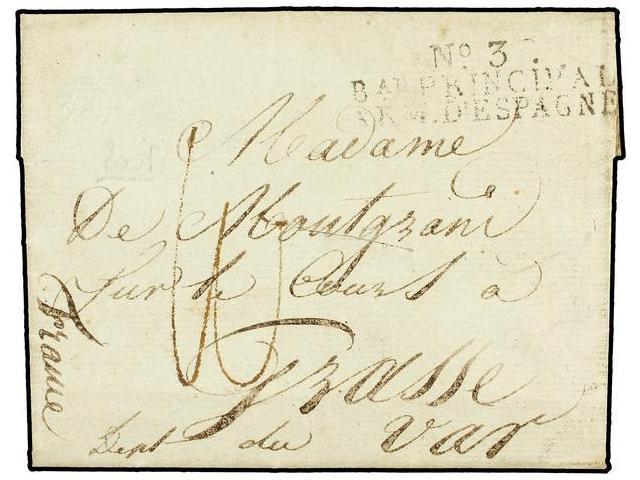 No 3
BAU PRINCIPAL
ARM. D'ESPAGNE
Madame
De Montgrand
Sur le Cours à
Grasse
Dept du Var
France